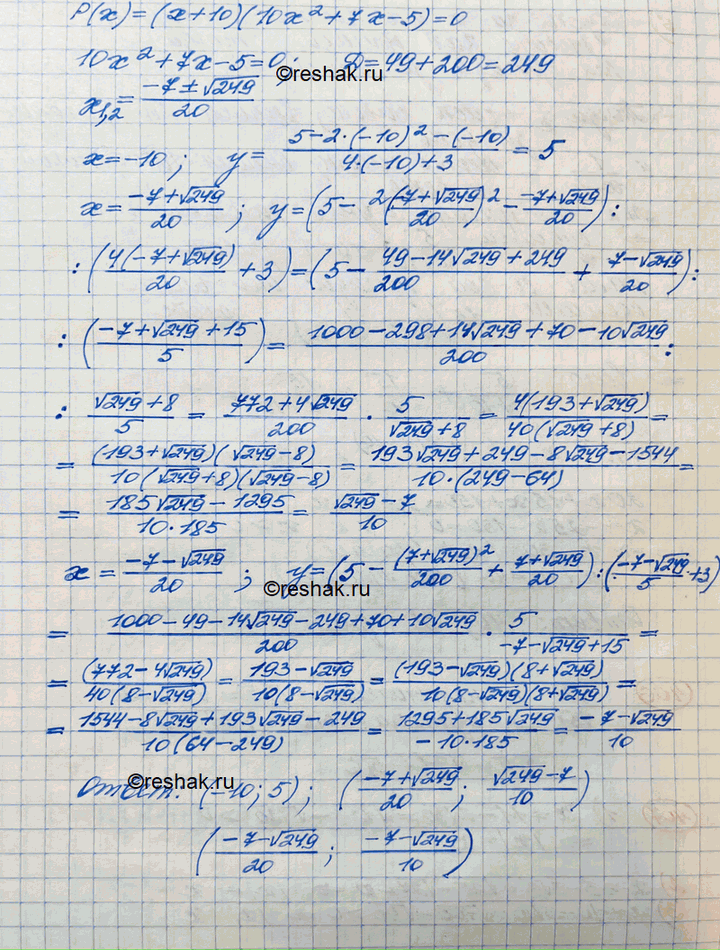 P(x) = (x+10)(10x² + 7x - 5) = 0
10x² + 7x - 5 = 0; D = 49 + 200 = 249
©reshak.ru
x₁,₂ = (-7 ± √249)/20
x = -10; y = (5 - 2·(-10)² - (-10))/(4·(-10)+3) = 5
x = (-7+√249)/20; y = (5 - 2((-7+√249)/20)² - (-7+√249)/20):
:(4(-7+√249)/20 + 3) = (5 - (49 - 14√249 + 249)/200 + (7-√249)/20):
:((-7+√249+15)/5) = (1000 - 298 + 14√249 + 70 - 10√249)/200:
:(√249+8)/5 = (772+4√249)/200 · 5/(√249+8) = 4(193+√249)/(40(√249+8)) =
= (193+√249)(√249-8)/(10(√249+8)(√249-8)) = (193√249 + 249 - 8√249 - 1544)/(10·(249-64)) =
= (185√249 - 1295)/(10·185) = (√249-7)/10
x = (-7-√249)/20; y = (5 - (7+√249)²/200 + (7+√249)/20):((-7-√249)/5 + 3)
©reshak.ru
= (1000 - 49 - 14√249 - 249 + 70 + 10√249)/200 · 5/(-7-√249+15) =
= (772-4√249)/(40(8-√249)) = (193-√249)/(10(8-√249)) = (193-√249)(8+√249)/(10(8-√249)(8+√249)) =
= (1544 - 8√249 + 193√249 - 249)/(10(64-249)) = (1295+185√249)/(-10·185) = (-7-√249)/10
©reshak.ru
Ответ: (-10; 5); ((-7+√249)/20; (√249-7)/10)
((-7-√249)/20; (-7-√249)/10)